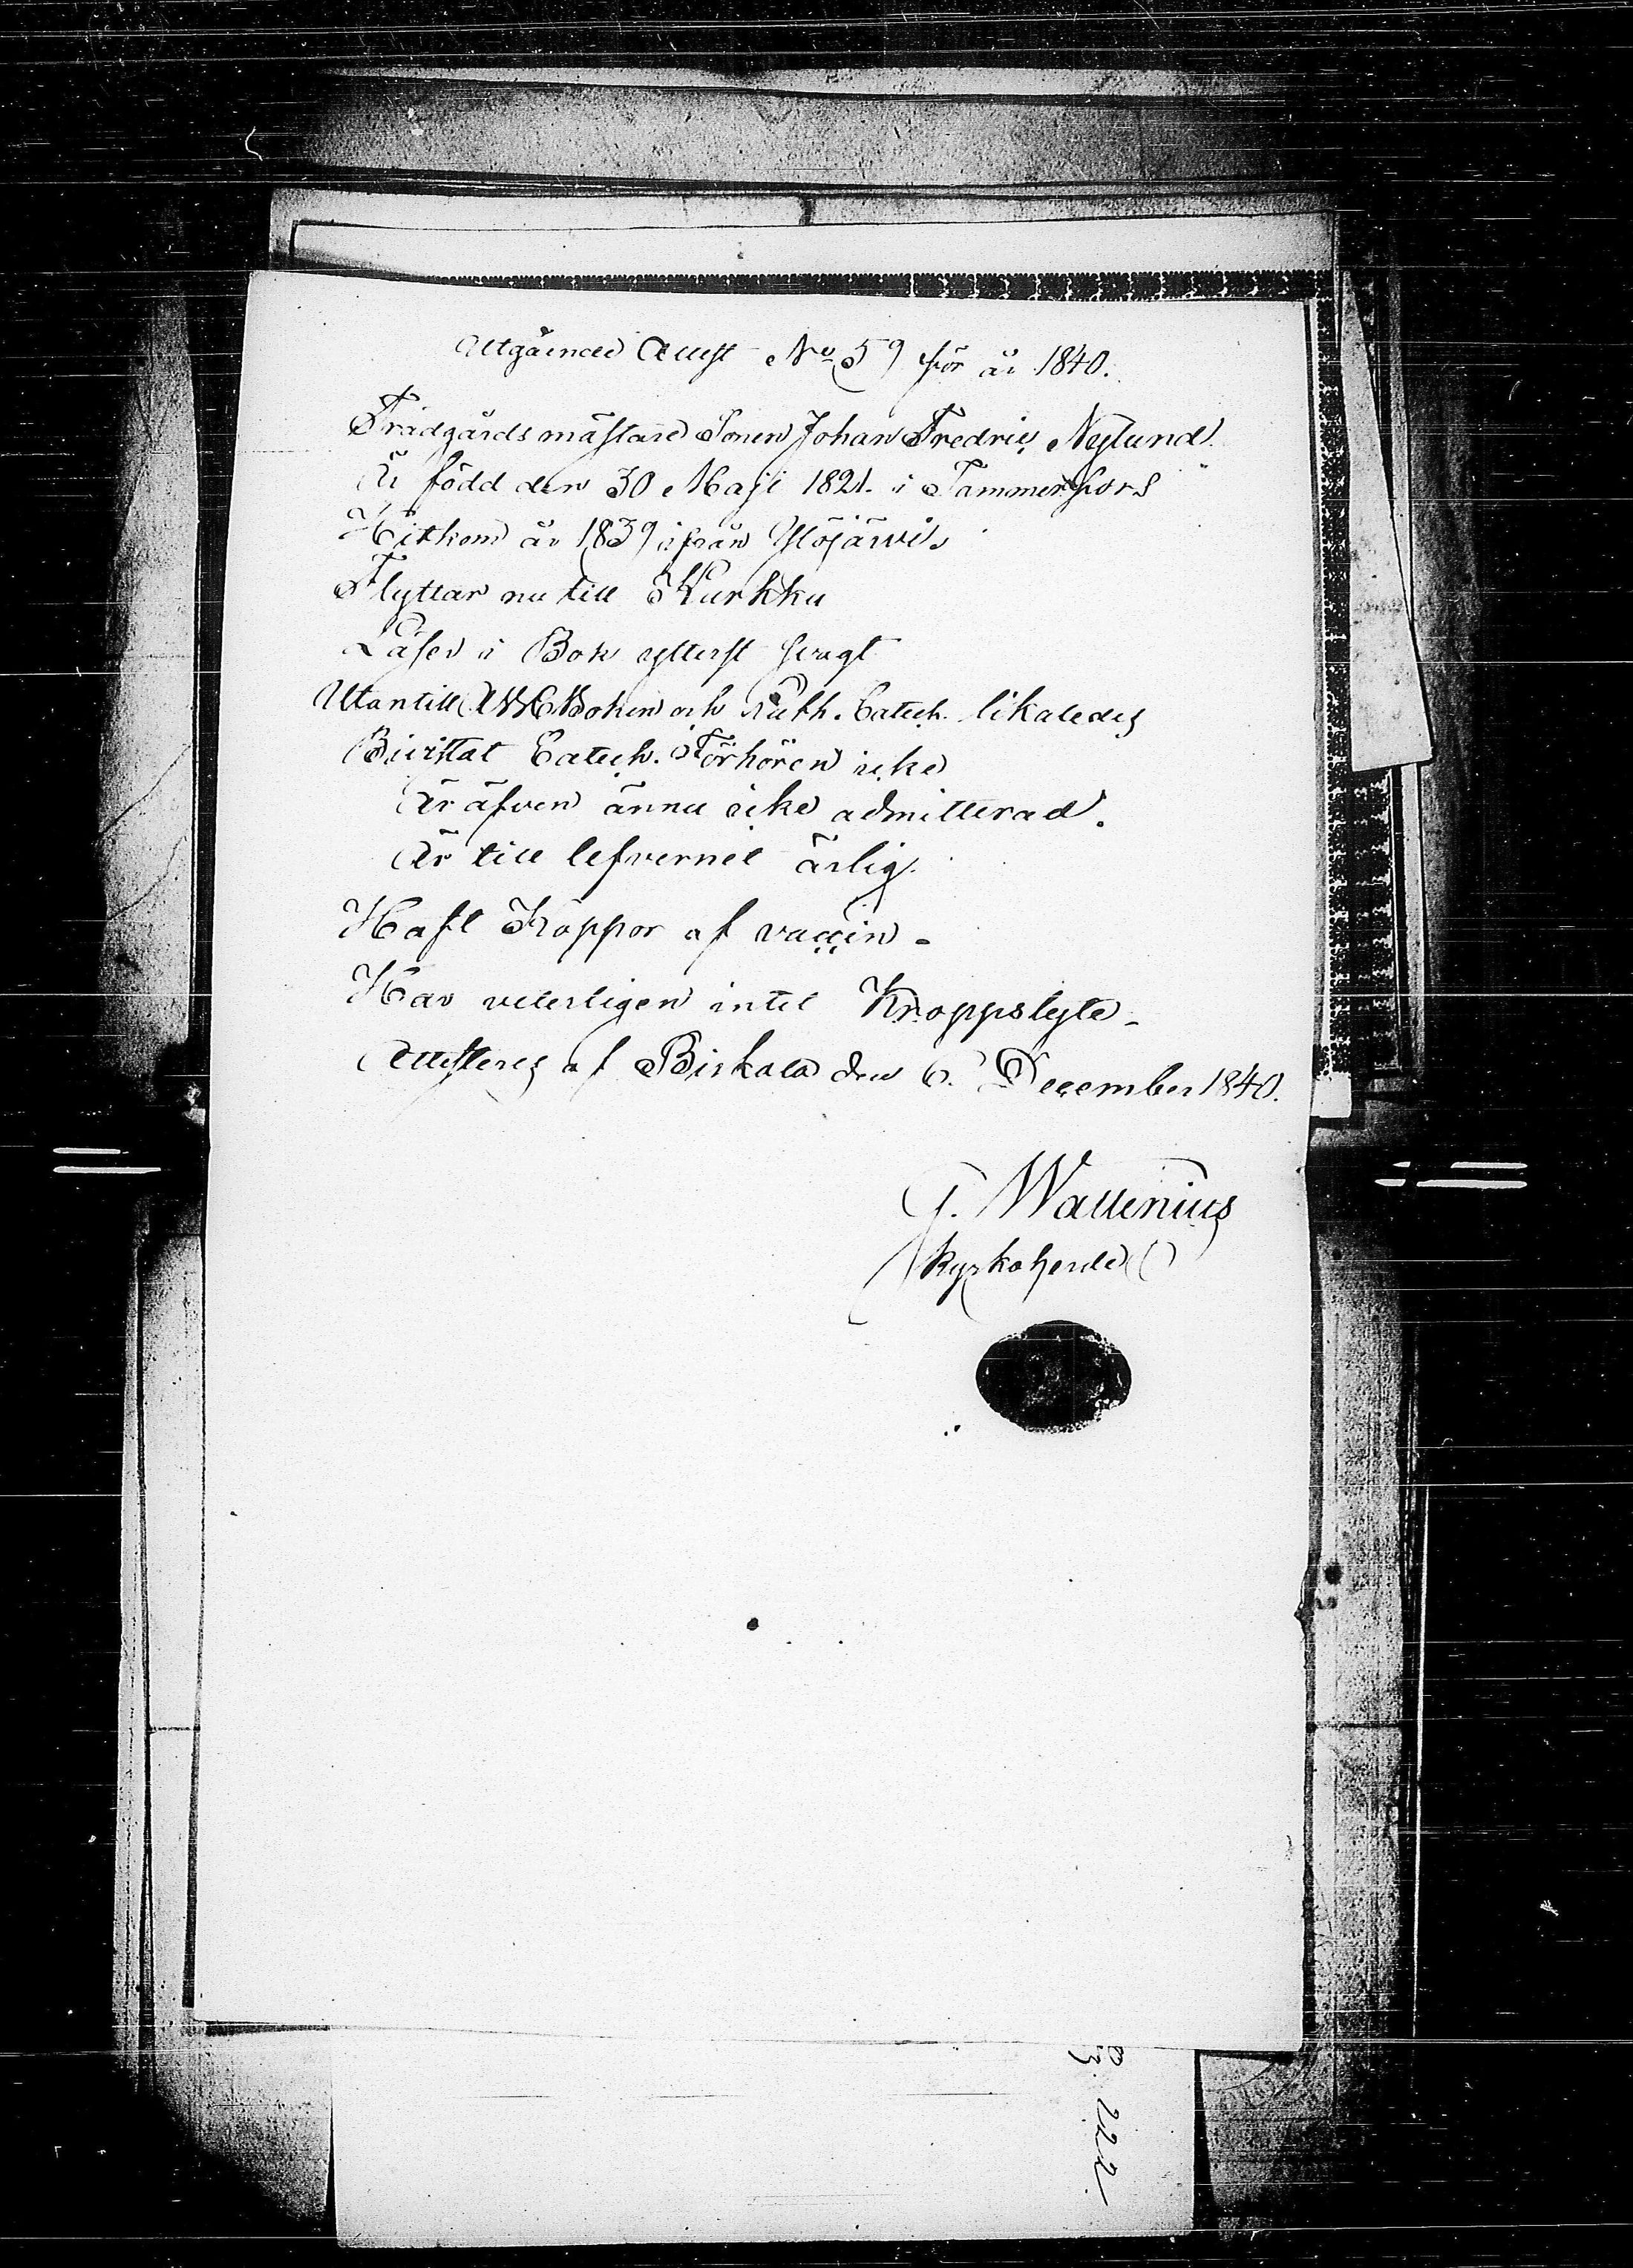 Utgående Attest No 59 för år 1840.
Trädgårdsmästare Sonen Johan Fredric Neylund
Är född den 30 Maji 1821. i Tammerfors
Hitkom år 1839 ifrån Ylöjärvi
Flyttar nu till Karkku
Läser i Bok ytterst svagt
Utantill ABC Boken och Luth. Catech. likaledes
Bivistat Catech. Förhören icke
Är äfven ännu icke admitterad.
Är till lefvernet ärlig.
Haft Koppor af vaccin -
Har veterligen intet Kroppslyte -
Attesteras af Birkala den 6. December 1840.
G. Wallenius
Kyrkoherde
222